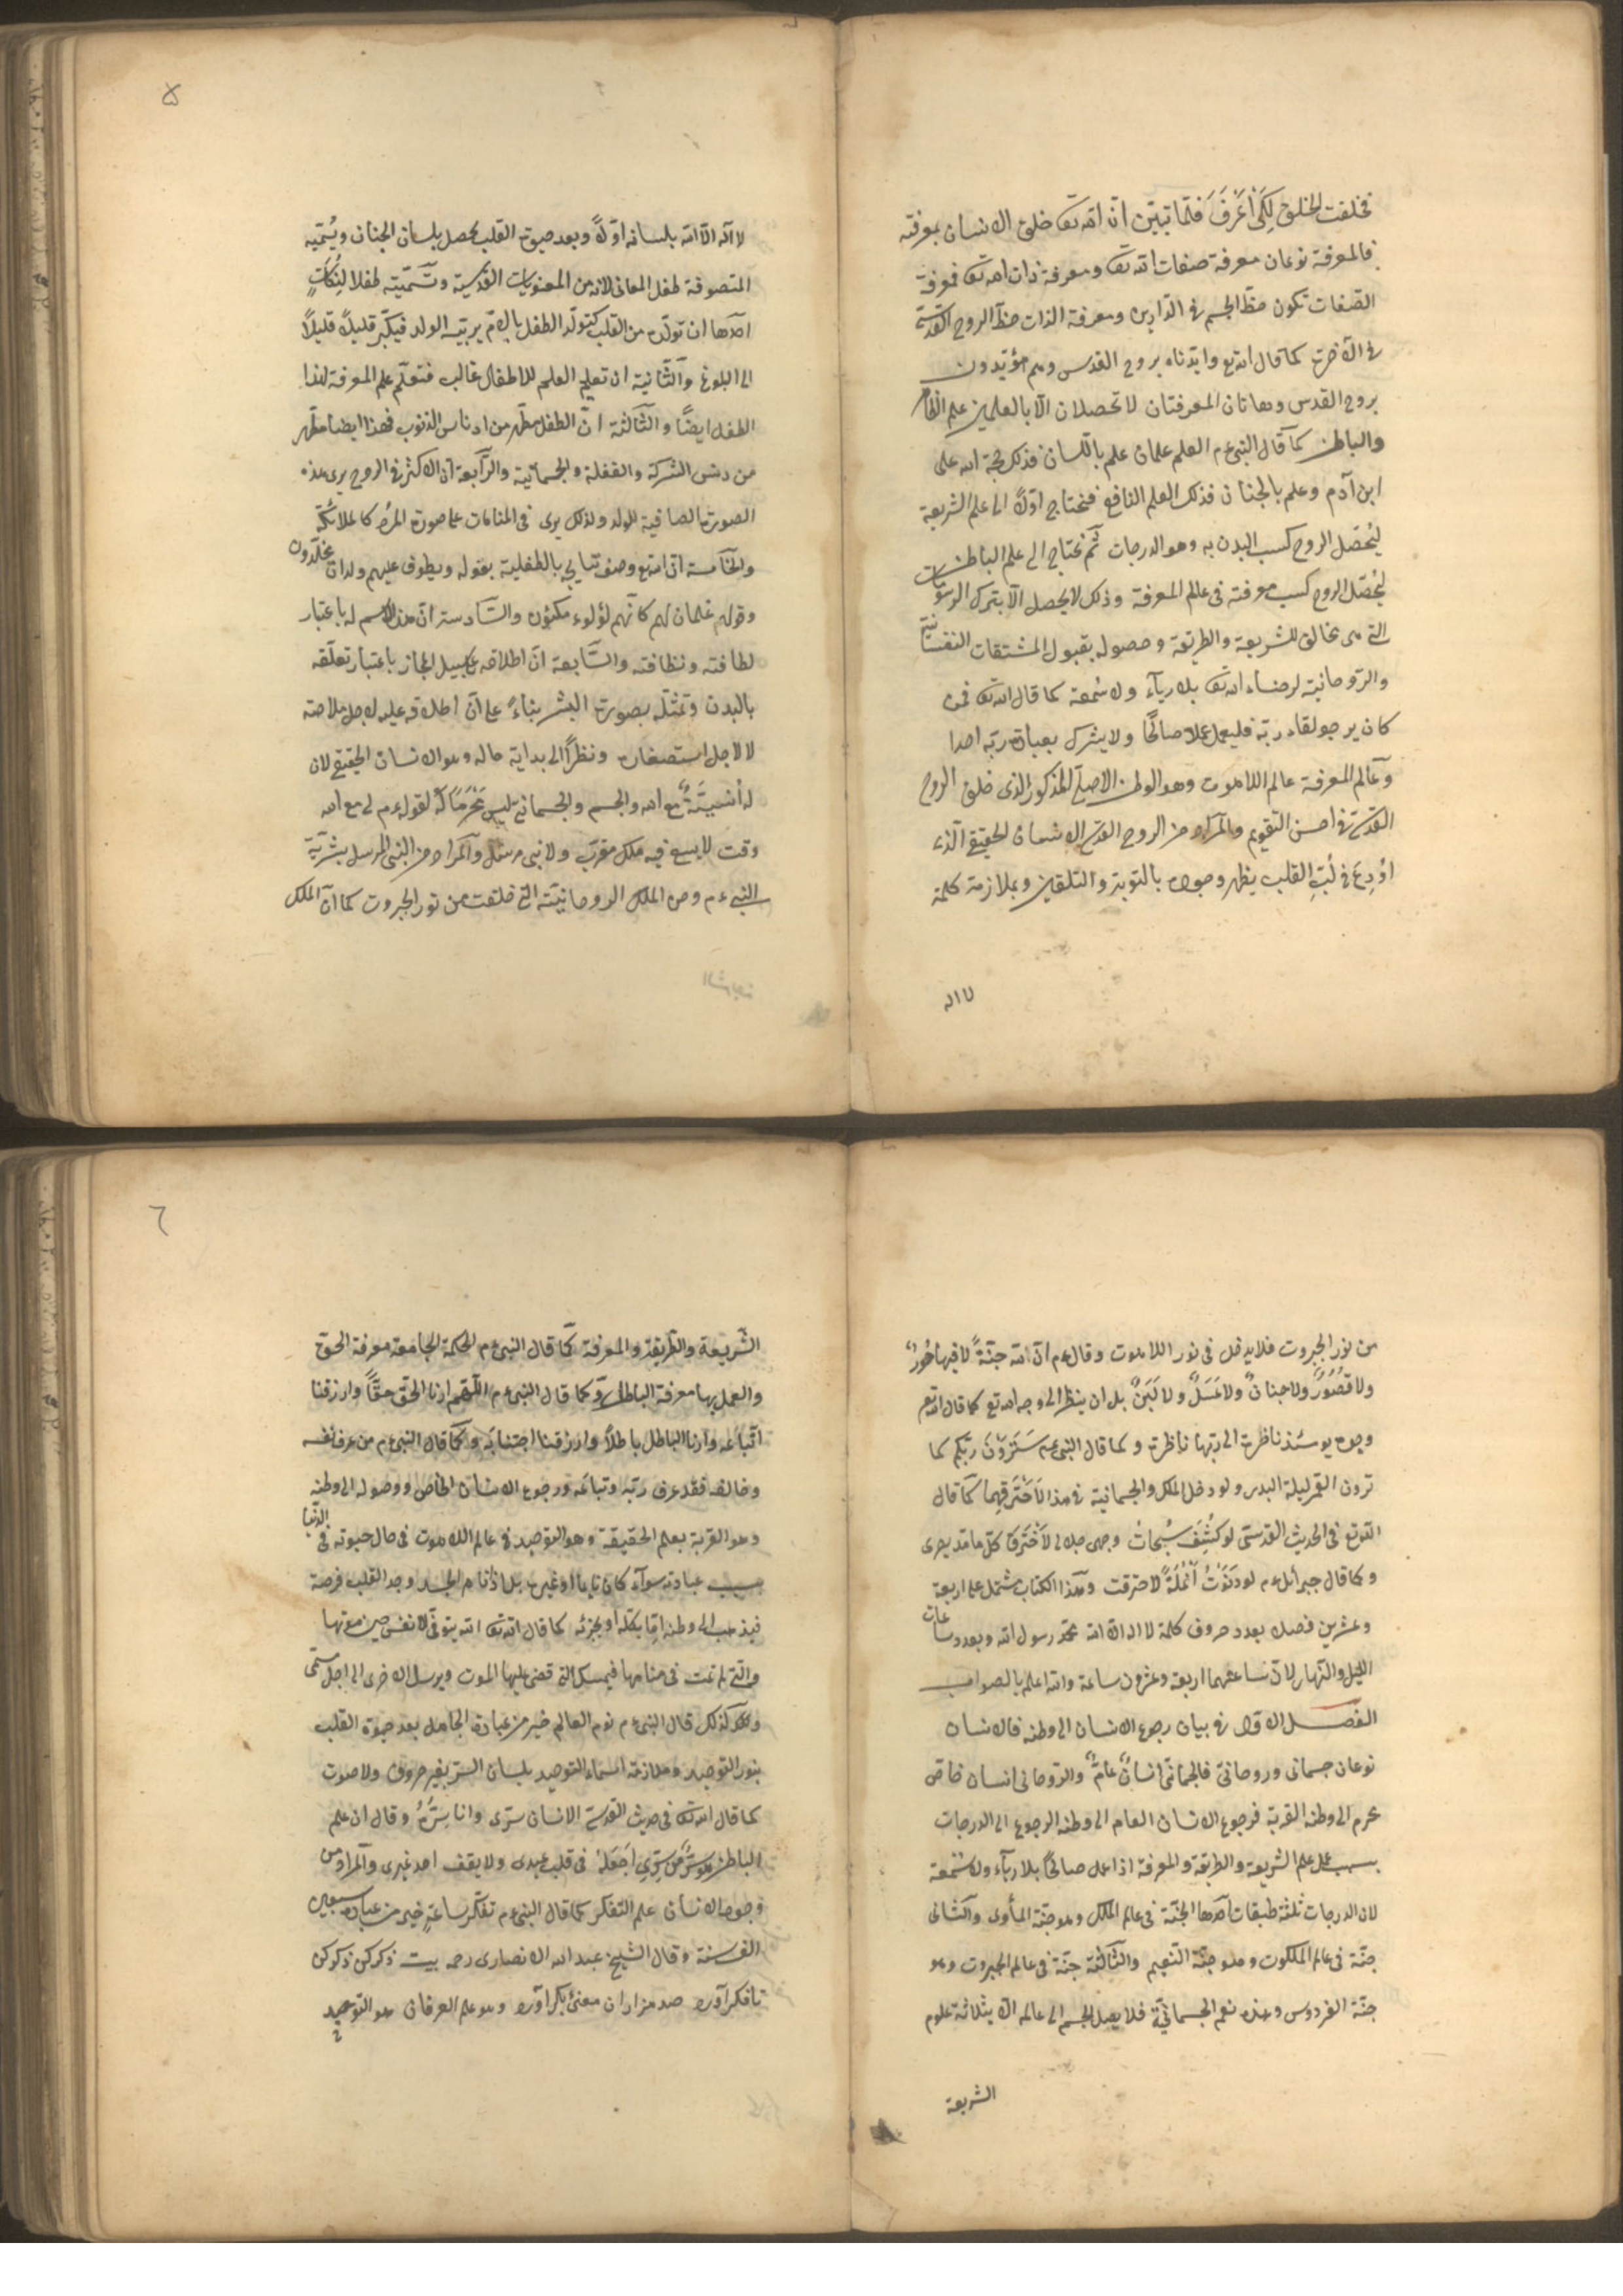 فخلقت الخلق لِكَىْ اُعْرَفَ فلمّا تبيّن انّ الله تع خلق الانسان بمعرفته
فالمعرفة نوعان معرفة صفات الله تع ومعرفة ذات الله تع فمعرفة
الصّفات تكون حظّ الجسم فى الدّارين ومعرفة الذات حظّ الروح القدسّى
فى الآخرة كما قال الله تع وايّدناه بروح القدس وهم مؤيّدون
بروح القدس وهاتان المعرفتان لا تحصلان الّا بالعلمين علم الظاهر
والباطن كما قال النبى ءم العلم علمان علم باللسان فذلك حجّة الله على
ابن آدم وعلم بالجنان فذلك العلم النافع فتحتاج اوّلاً الى علم الشريعة
ليُحَصّل الروح كسب البدن به وهو الدرجات ثمّ تحتاج الى علم الباطن
ليُحصّل الروح كسب معرفته فى عالم المعرفة وذلك لا يحصل الّا بترك الرسومات
التى هى مخالف للشريعة والطريقة وحصوله بقبول المشتقات النفسانيّة
والرّوحانية لرضاء الله تع بلا ريآء ولا سُمعة كما قال الله تع فمن
كان يرجو لقاء ربّه فليعمل عملا صالحًا ولا يشرك بعبادة ربّه احدا
وعالم المعرفة عالم اللاهوت وهو الوطن الاصلّى المذكور الذى خلق الروح
القدسّى فى احسن التقويم والمراد من الروح القدسى الانسان الحقيقى الّذى
اُودِعَ فى لُبّ القلب يظهر وجوده بالتوبة والتلقين وبملازمة كلمة
لا اله
٥
لا اله الّا الله بلسانه اوّلاً وبعد حيوة القلب يحصل بلسان الجنان ويُسَمّيه
المتصوفة طفل المعانى لانه من المعنويات القدسيّة وتسميّته طفلا لِنِكَاتٍ
احدها ان تولّده من القلب كتولّد الطفل بالامّ يربّيه الولد فيكبّر قليلاً قليلاً
الى البلوغ والثّانية ان تعليم العلم للاطفال غالب فتعلّم علم المعرفة لهذا
الطفل ايضًا والثّالثة انّ الطفل مطهّر من ادناس الذنوب فهذا ايضا مطهّر
من دنس الشركة والغفلة والجسمانّية والرّابعة انّ الاكثر فى الروح يرى هذه
الصورة الصافية للولد ولذلك يرى فى المنامات على صورة المُرد كالملائكة
والخامسة انّ الله تع وصف نتايجه بالطفلية بقوله ويطوف عليهم ولدان مخلّدون
وقوله غلمان لهم كانّهم لؤلوء مكنون والسّادسة انّ هذا الاسم له باعتبار
لطافته ونظافته والسّابعة انّ اطلاقه على سبيل المجاز باعتبار تعلّقه
بالبدن وتمثّله بصورة البشر بناءً على انّ اطلاقه عليه لاجل ملاحته
لا لاجل استصغاره ونظرًا الى بداية حاله وهو الانسان الحقيقى لان
له أنْسيَّةً مع الله والجسم والجسمانى ليس مَحْرَمًا له لقوله ءم لى مع الله
وقت لا يسع فيه ملك مقرّب ولا نبى مرسَل والمراد من النبى المرسل بشريّة
النبى ءم ومن الملك الروحانيّته التى خلقت من نور الجبروت كما انّ الملك
من نور الجبروت فلا يدخل فى نور اللاهوت وقال ءم انّ لله جنّةً لا فيها حُورٌ
ولا قُصُورٌ ولا جنانٌ ولا عَسَلٌ ولا لَبَنٌ بل ان ينظر الى وجه الله تع كما قال الله تع
وجوه يومئذ ناظرة الى ربّها ناظرة وكما قال النبى ءم سَتَرَوْنَ ربّكم كما
ترون القمر ليلة البدر ولو دخل الملك والجسمانية فى هذا لاحْتَرَقَهما كما قال
الله تع فى الحديث القدسىّ لو كُشِفَ سُبحات وجهى جلالى لاحْترَقَ كلّ ما مدّ بصرى
وكما قال جبرائل ءم لو دَنَوْتُ اَنْمُلَةً لاحترقت وهذا الكتاب مشتمل على اربعة
وعشرين فصلا بعدد حروف كلمة لا اله الا الله محمّد رسول الله وبعدد ساعات
الليل والنّهار لانّ ساعتهما اربعة وعشرون ساعة والله اعلم بالصواب
الفصل الاول فى بيان رجوع الانسان الى وطنه فالانسان
نوعان جسمانى وروحانىّ فالجسمانى انسانٌ عامٌّ والرّوحانى انسان خاصّ
محرم الى وطنه القربة فرجوع الانسان العام الى وطنه الرجوع الى الدرجات
بسبب عمل علم الشريعة والطريقة والمعرفة اذا عمل صالحًا بلا ريآء ولا سُمعة
لان الدرجات ثلثة طبقات احدها الجنّة فى عالم الملك وهو جنّة المأوى والثّانى
جنّة فى عالم الملكوت وهو جنّة النّعيم والثّالثة جنّة فى عالم الجبروت وهو
جنّة الفردوس وهذه نعم الجسمانيّة فلا يصل الجسم الى عالمه الّا بثلاثة علوم
الشريعة
٦
الشّريعة والطّريقة والمعرفة كما قال النبى ءم الحكمة الجامعة معرفة الحقّ
والعمل بها معرفة الباطل وكما قال النبى ءم اللّهم ارنا الحقّ حقًّا وارزقنا
اتّباعه وارنا الباطل باطلاً وارزقنا اجتنابه وكما قال النبى ءم من عرف نفسه
وخالفه فقد عرف ربّه وتباعه ورجوع الانسان الخاصّ ووصوله الى وطنه
وهو القربة بعلم الحقيقة وهو التوحيد فى عالم اللاهوت فى حال حيوته فى الدّنيا
بسبب عبادته سوآء كان نايما او غيره بل اذا نام الجسد وجد القلب فرصة
فيذهب الى وطنه امّا بكلّه او بجزئه كما قال الله تع الله يتوفّى الانفس حين موتها
والتى لم تمت فى منامها فيمسك التى قضى عليها الموت ويرسل الاخرى الى اجل مسمّى
ولذلك قال النبى ءم نوم العالم خير من عبادة الجاهل بعد حيوة القلب
بنور التوحيد وملازمة اسماء التوحيد بلسان السّر بغير حروف ولا صوت
كما قال الله تع فى حديث القدسى الانسان سرّى وانا سِرُّهُ وقال ان علم
الباطن هو سرٌّ من سِرّى اَجْعَلهُ فى قلب عبدى ولا يقف احد غيرى والمراد من
وجود الانسان علم التفكّر كما قال النبى ءم تفكّر ساعةٍ خير من عبادة سبعين
الف سنة وقال الشيخ عبد الله الانصارى رحمه بيت ذكر كن ذكر كن
تا فكر آورد صد هزاران معنئ بكر آورد وهو علم العرفان هو التوحيد